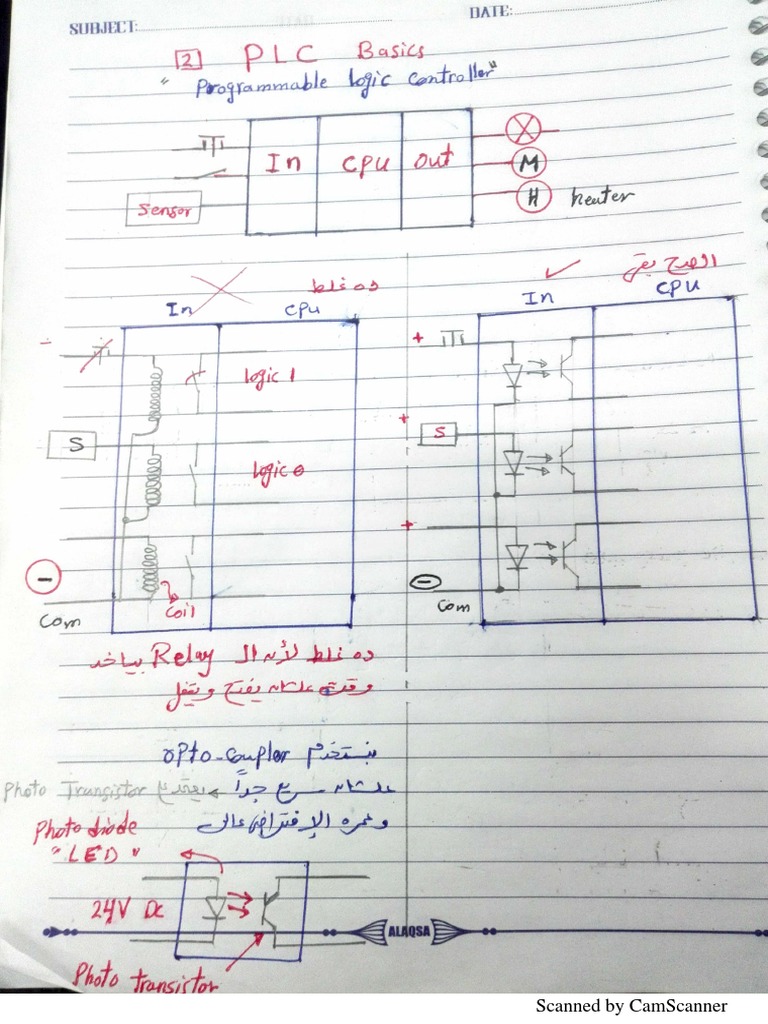 SUBJECT:
DATE:
2 PLC Basics
"Programmable logic controller"
In CPU Out
M
H heater
Sensor
ده غلط
In CPU
logic 1
S
logic 0
-
Com
Coil
الصح بقى
In CPU
+
+
S
+
-
Com
ده غلط لأنه ال Relay بياخد
وقت علشان يفتح ويقفل
بنستخدم opto-coupler
علشان سريع جداً
Photo Transistor
وعمره الإفتراضى عالى
Photo diode
"LED"
24V DC
ALAQSA
Photo transistor
Scanned by CamScanner